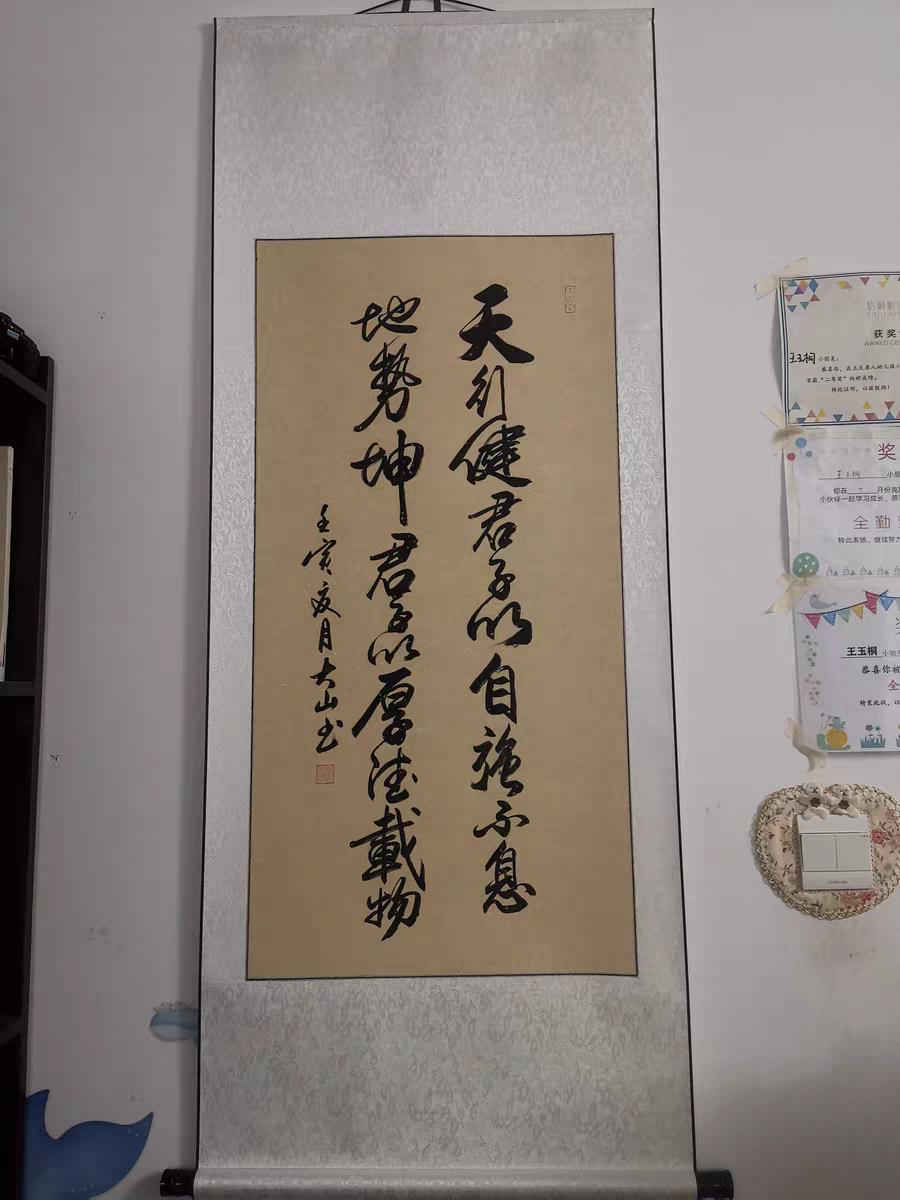 天行健君子以自强不息
地势坤君子以厚德載物
壬寅夏月大山书
获奖
AWAED CE
王玉桐小朋友：
恭喜你，在
荣获“二等奖”的好成绩。
特此证明，以资鼓励！
奖
王玉桐
你在 月份克
小伙伴一起学习成长，
全勤
特此表扬，继续努力
王玉桐 小朋
恭喜你被
全
特发此状，以